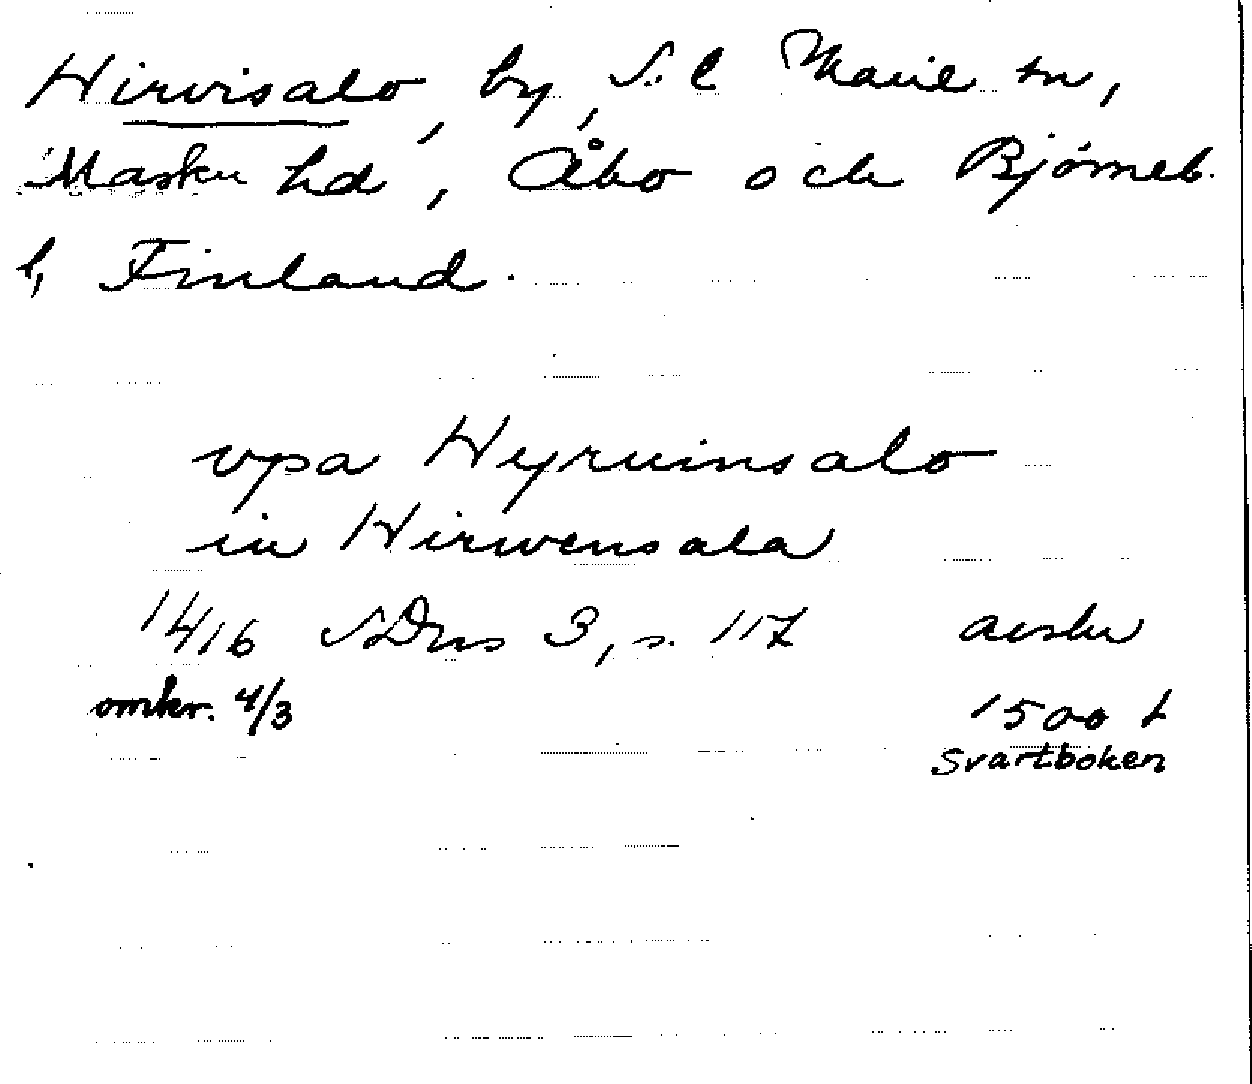 Hirvisalo, by, S:t Marie sn,
Masku hd, Åbo och Björneb.
l, Finland.
vpa Hyruinsalo
in Hirwensala
1416 SDns 3, s. 117 avskr
omkr. 4/3 1500 t
Svartboken